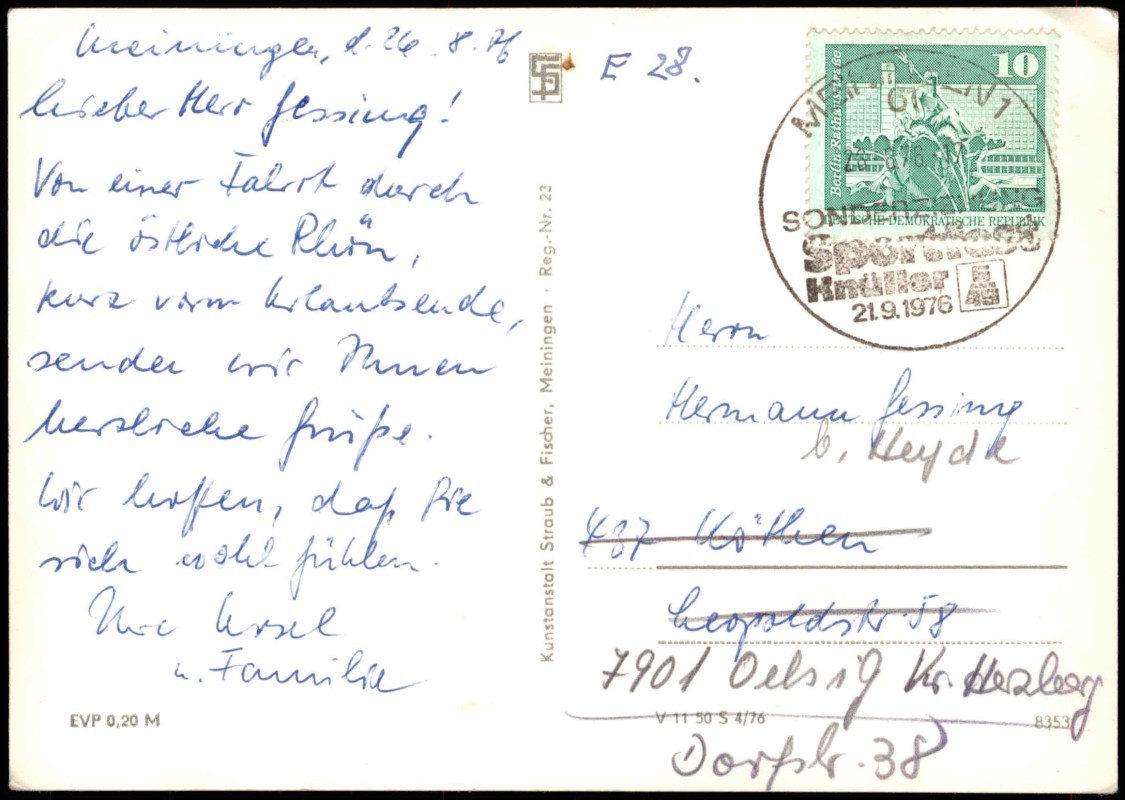 Meiningen, d. 26.8.76
Lieber Herr Gessing!
Von einer Fahrt durch
die östliche Rhön,
kurz vorm Urlaubsende,
senden wir Ihnen
herzliche Grüße.
Wir hoffen, daß Sie
sich wohl fühlen.
Ihre Ursel
u. Familie
EVP 0,20 M
Kunstanstalt Straub & Fischer, Meiningen · Reg.-Nr. 23
E 28.
10
Berlin-Rathausstraße
DEUTSCHE DEMOKRATISCHE REPUBLIK
MEININGEN 1
SONDERZIEHUNG
Sportfest
Knüller
21.9.1976
Herrn
Hermann Gessing
b. Heyde
437 Köthen
Leopoldstr. 58
7901 Oelsig Kr. Herzberg
V 11 50 S 4/76
8353
Dorfstr. 38